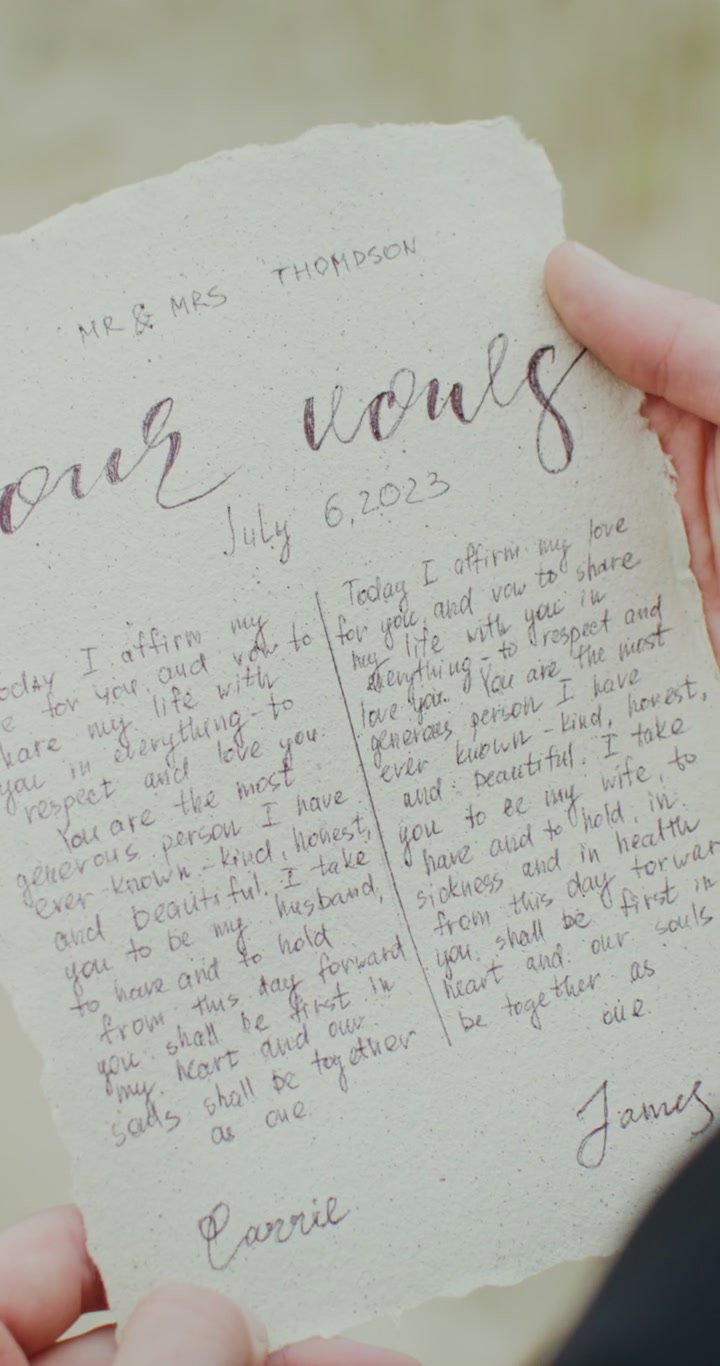 MR & MRS THOMDSON
our vows
July 6, 2023
oday I affirm my
e for you, and vow to
hare my life with
you in everything - to
respect and love you.
You are the most
generous person I have
ever known - kind, honest,
and beautiful. I take
you to be my husband,
to have and to hold
from this day forward
you shall be first in
my heart and our
souls shall be together
as one.
Carrie
Today I affirm my love
for you, and vow to share
my life with you in
everything - to respect and
love you. You are the most
generous person I have
ever known - kind, honest,
and beautiful. I take
you to be my wife, to
have and to hold, in
sickness and in health
from this day forwar
you shall be first in
heart and our souls
be together as
one.
James